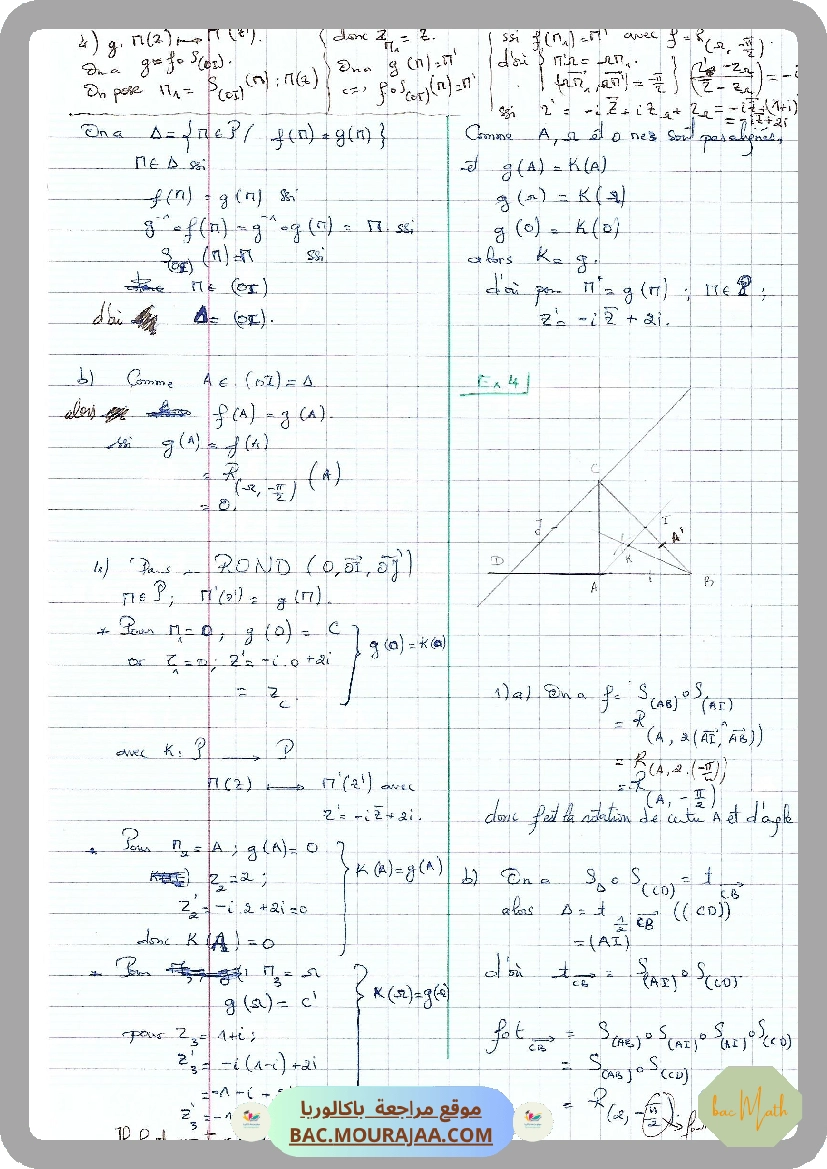 4) g: M(z) ⟼ M'(z').
On a g = f∘S(OI).
On pose M₁ = S(OI)(M) ; M(z)
donc z_M₁ = z̄.
On a g(M) = M'
c=, f∘S(OI)(M) = M'
ssi f(M₁) = M' avec f = R(Ω, -π/2).
d'où
ssi z' = -i z̄ + i z_Ω + z_Ω = -i z̄ + (1+i)
= -i z̄ + 2i
On a Δ = {M∈P / f(M) = g(M)}
M∈Δ ssi
f(M) = g(M) ssi
g⁻¹∘f(M) = g⁻¹∘g(M) = M ssi
S(OI)(M) = M ssi
M∈(OI)
d'où Δ = (OI).
b) Comme A∈(OI) = Δ
alors f(A) = g(A).
ssi g(A) = f(A)
= R(Ω, -π/2) (A)
= O.
4) Dans ROND (O, OI, OJ)
M∈P ; M'(z') = g(M).
* Pour M₁ = O ; g(O) = C
or z₁ = 0 ; z' = -i.0 + 2i
= z_C.
g(O) = K(O)
avec K : P ⟶ P
M(z) ⟼ M'(z') avec
z' = -i z̄ + 2i.
* Pour M₂ = A ; g(A) = O
z₂ = 2 ;
z'₂ = -i.2 + 2i = 0
donc K(A) = O
K(A) = g(A)
* Pour M₃ = Ω
g(Ω) = C'
pour z₃ = 1+i ;
z'₃ = -i(1-i) + 2i
= -1 - i +
z'₃ = -1
K(Ω) = g(Ω)
Comme A, Ω et O nes sont pas alignés,
et g(A) = K(A)
g(Ω) = K(Ω)
g(O) = K(O)
alors K = g.
d'où pour M' = g(M) ; M∈P ;
z' = -i z̄ + 2i.
Ex 4
C
J
I
A'
D
K
A
B
1) a) On a f = S(AB)∘S(AI)
= R(A, 2(AI, AB))
= R(A, 2.(-π/4))
= R(A, -π/2)
donc f est la rotation de centre A et d'angle
b) On a S_Δ∘S(CD) = t_CB
alors Δ = t_½CB ((CD))
= (AI)
d'où t_CB = S(AI)∘S(CD).
f∘t_CB = S(AB)∘S(AI)∘S(AI)∘S(CD)
= S(AB)∘S(CD)
موقع مراجعة باكالوريا
BAC.MOURAJAA.COM
bac Math